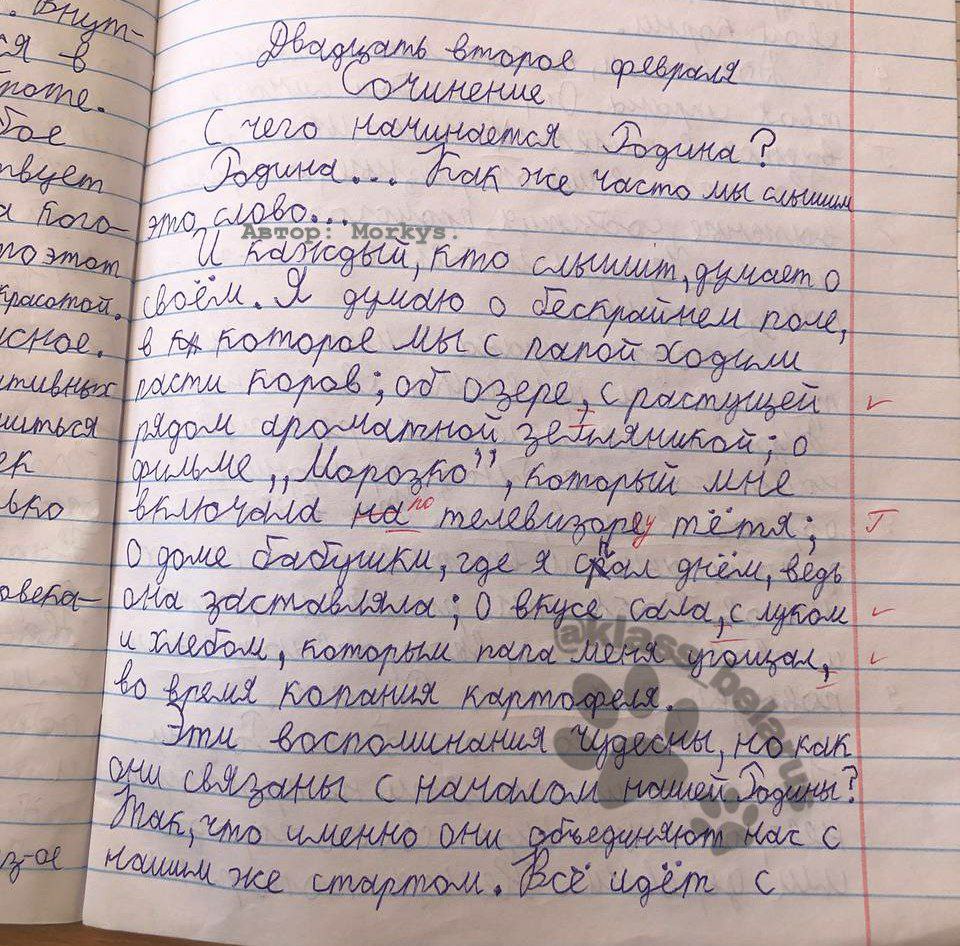 . Внут-
ся в
роте.
бое
твует
а кого-
то этот
красотой.
сное.
ативных
шиться
ек
лько
овека-
з-ое
Двадцать второе февраля
Сочинение
С чего начинается Родина?
Родина... Как же часто мы слышим
это слово...
Автор: Morkys.
И каждый, кто слышит, думает о
своём. Я думаю о бескрайнем поле,
в которое мы с папой ходили
пасти коров; об озере, с растущей
рядом ароматной земляникой; о
фильме „Морозко”, который мне
включала на по телевизореу тётя;
о доме бабушки, где я спал днём, ведь
она заставляла; о вкусе сала, с луком
и хлебом, которым папа меня угощал,
во время копания картофеля.
@klass_belarus
Эти воспоминания чудесны, но как
они связаны с началом нашей Родины?
Так, что именно они объединяют нас с
нашим же стартом. Всё идёт с